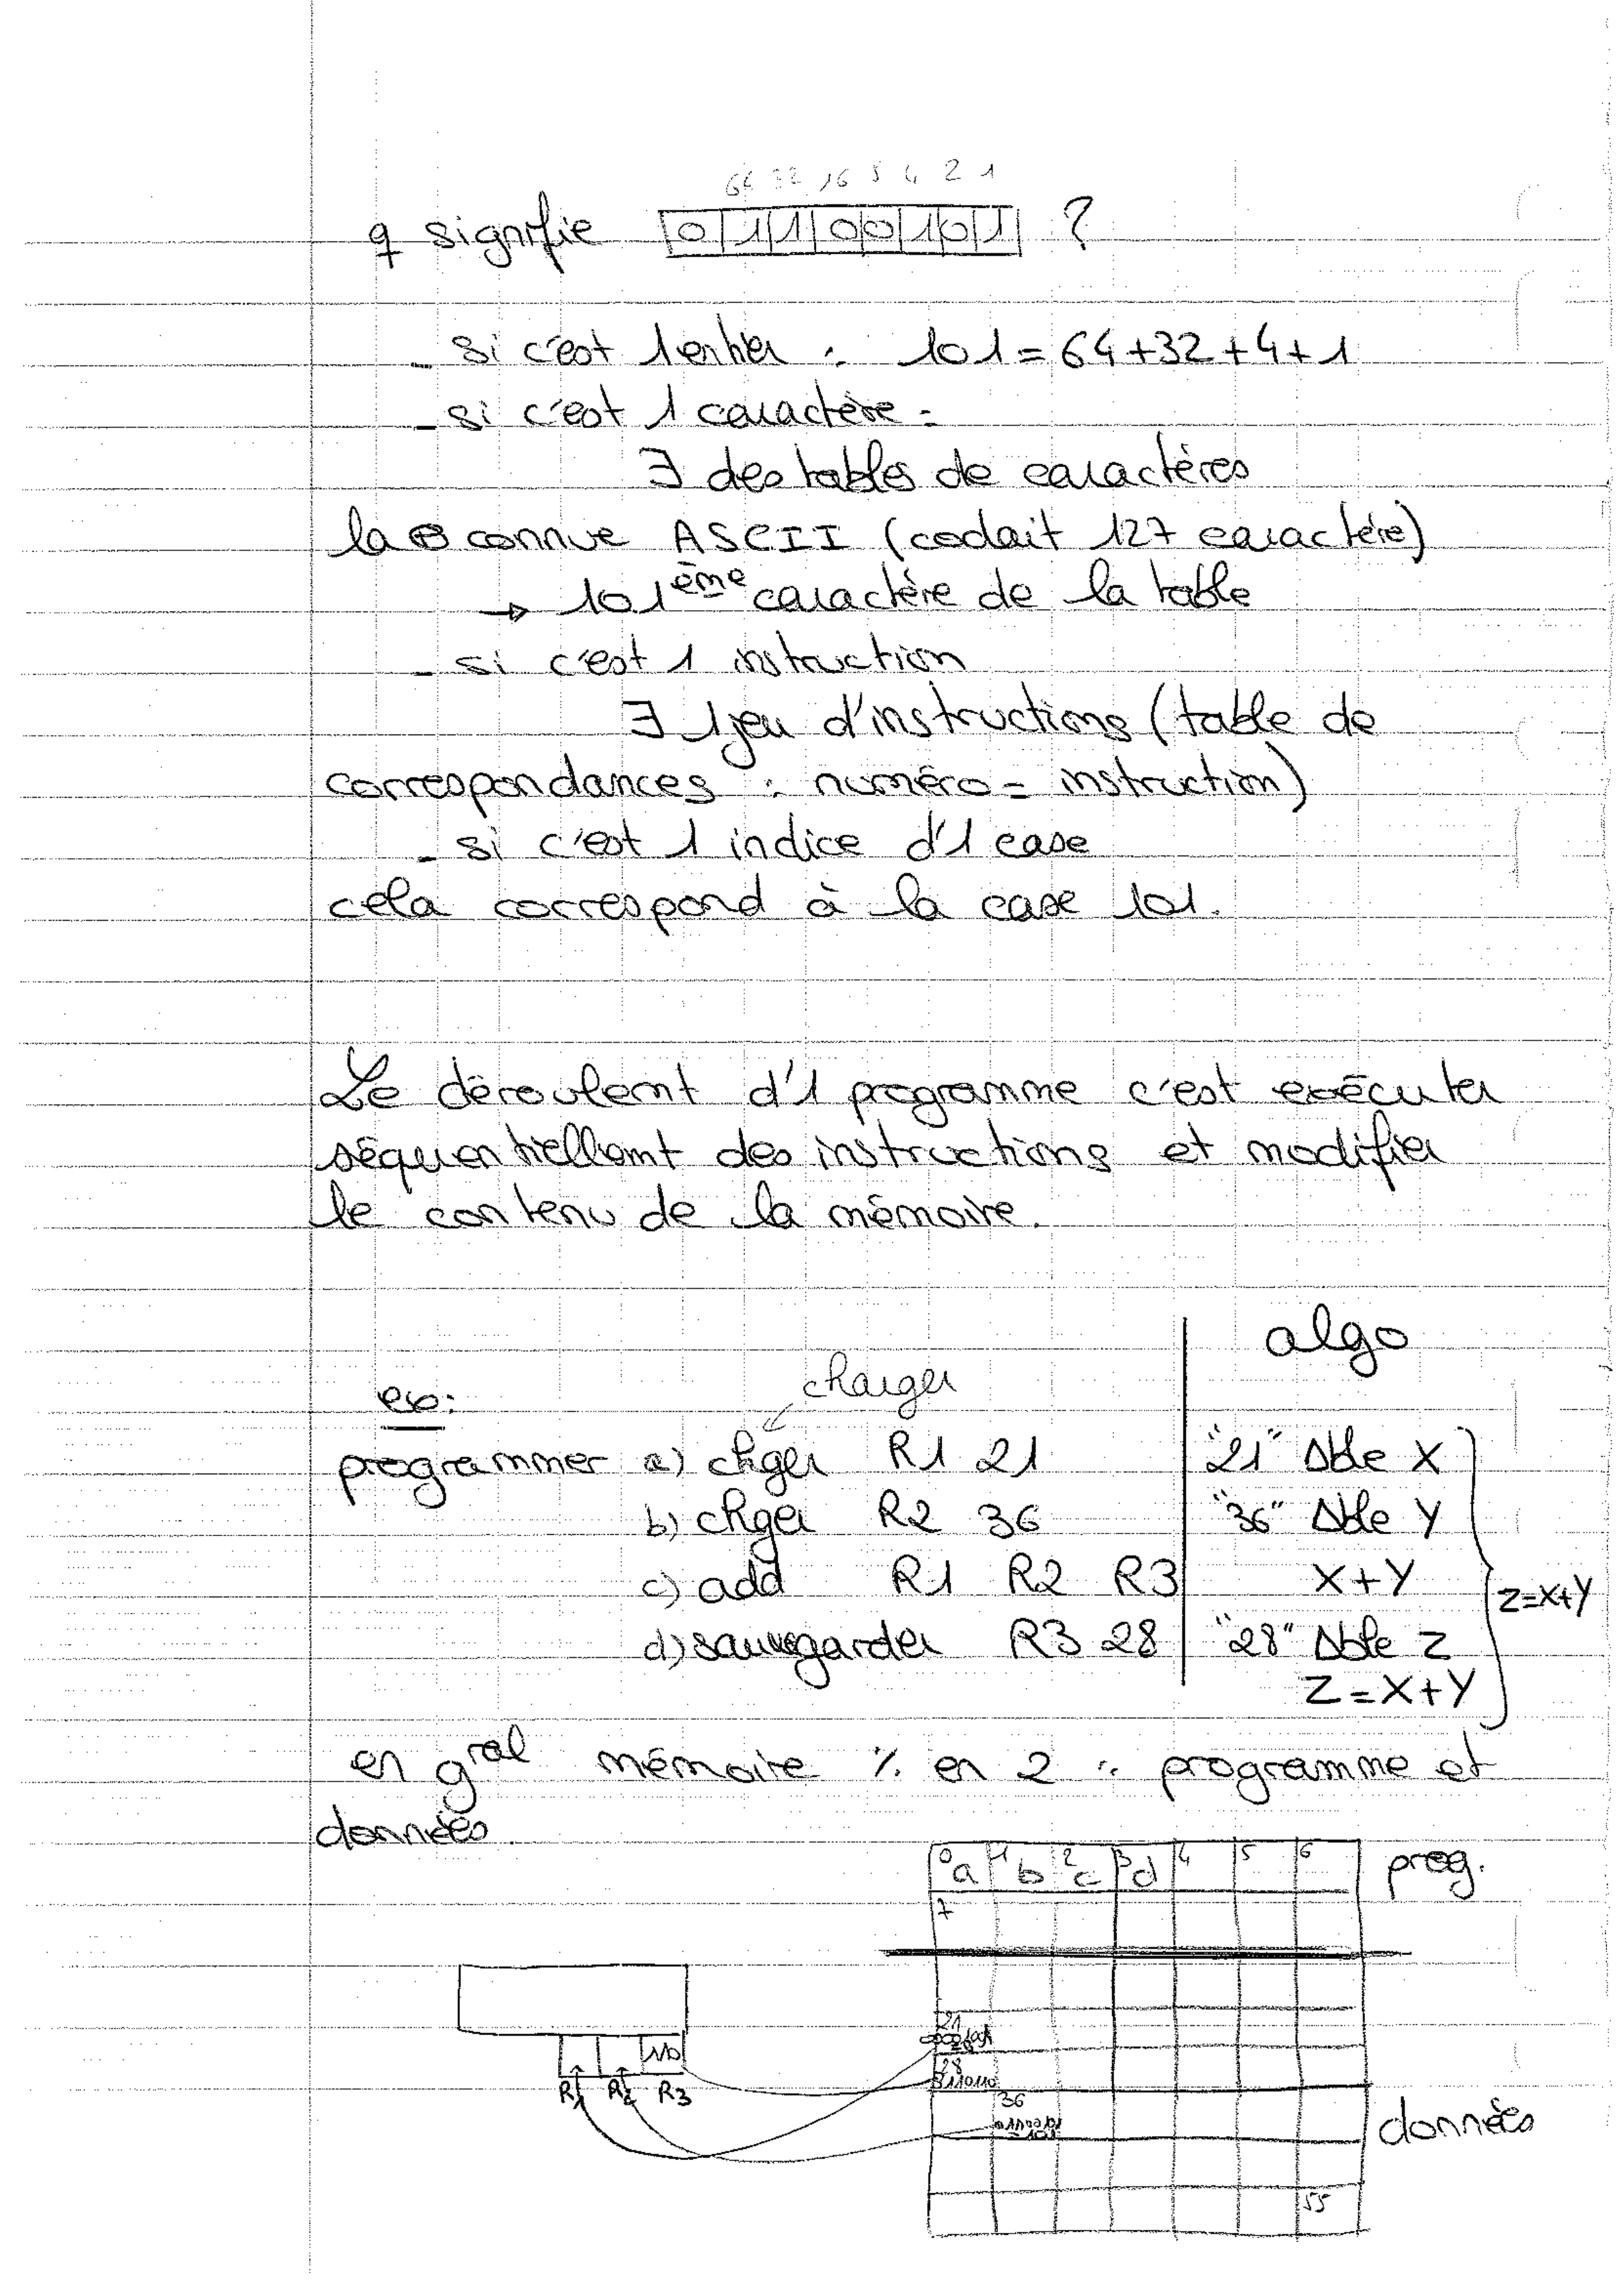 64 32 16 8 4 2 1
q signifie 0 1 1 0 0 1 0 1 ?
- si c'est 1 entier : 101 = 64+32+4+1
- si c'est 1 caractère :
∃ des tables de caractères
la ⊕ connue ASCII (codait 127 caractère)
→ 101ème caractère de la table
- si c'est 1 instruction
∃ 1 jeu d'instructions (table de
correspondances : numéro = instruction)
- si c'est 1 indice d'1 case
cela correspond à la case 101.
Le déroulemt d'1 programme c'est exécuter
séquentiellemt des instructions et modifier
le contenu de la mémoire.
algo
charger
ex:
programmer a) chger R1 21 "21" Δble X
b) chger R2 36 "36" Δble Y
c) add R1 R2 R3 X+Y
Z=X+Y
d) sauvegarder R3 28 "28" Δble Z
Z=X+Y
en gral mémoire % en 2 : programme et
données
0 a 1 b 2 c 3 d 4 5 6 prog.
7
21
28
R1 R2 R3
36
données
55